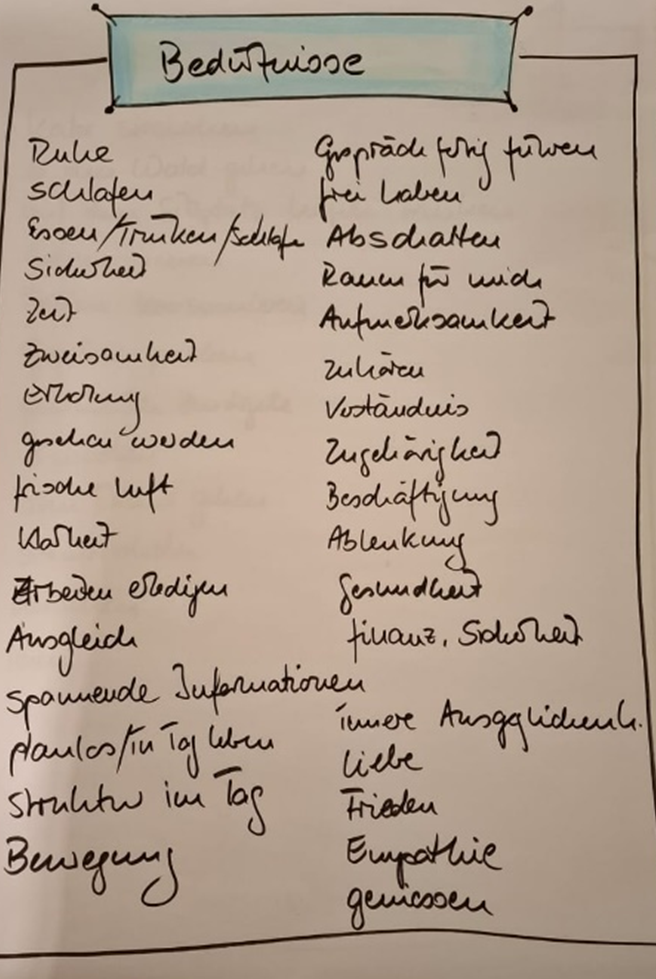 Bedürfnisse
Ruhe
schlafen
Essen/Trinken/Schlafe
Sicherheit
Zeit
Zweisamkeit
Erholung
gesehen werden
frische Luft
Klarheit
Arbeiten erledigen
Ausgleich
spannende Informationen
planlos/in Tag leben
Struktur im Tag
Bewegung
Gespräch fertig führen
frei haben
Abschalten
Raum für mich
Aufmerksamkeit
zuhören
Verständnis
Zugehörigkeit
Beschäftigung
Ablenkung
Gesundheit
finanz. Sicherheit
innere Ausgglichenh.
Liebe
Frieden
Empathie
geniessen